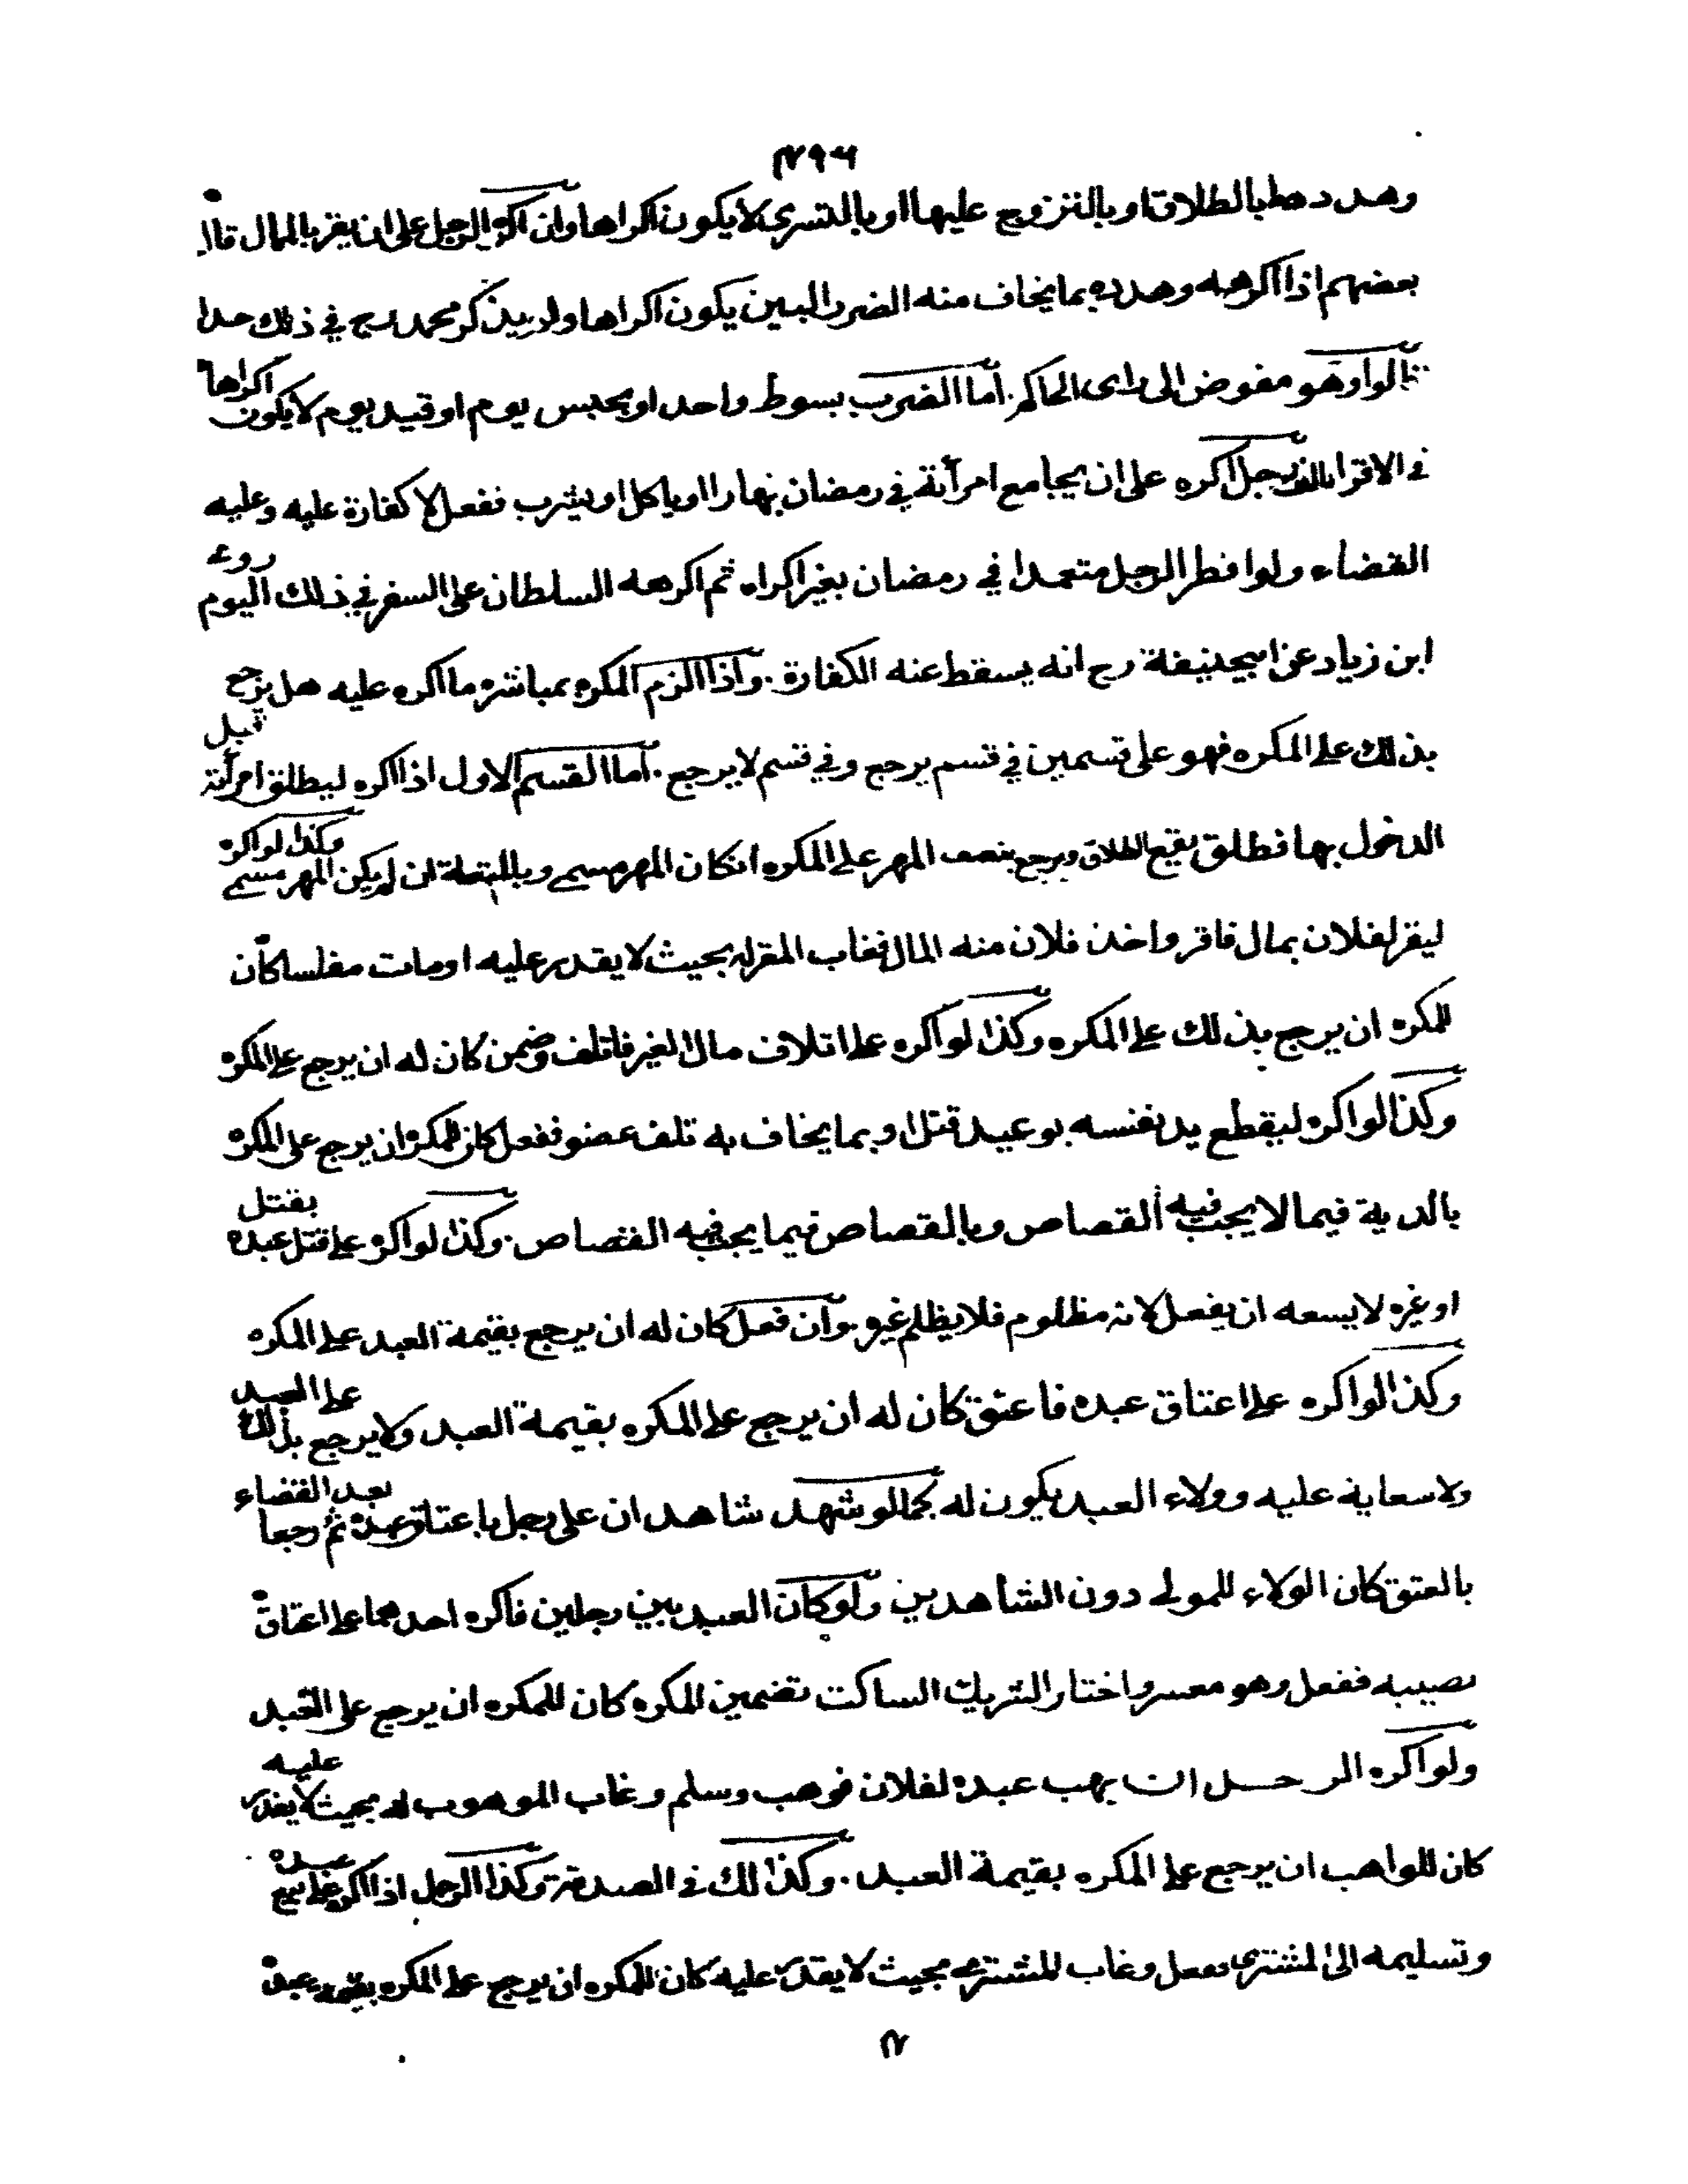 ٤٩٦
وهددها بالطلاق او بالتزوج عليها او بالتسرى لا يكون اكراها وان اكره الرجل على ان يقر بالمال قال
بعضهم اذا اكرهه وهدده بما يخاف منه الضرر البين يكون اكراها ولم يذكر محمد رح في ذلك حدا
قالوا وهو مفوض الى راى الحاكم. اما الضرب بسوط واحد او بحبس يوم او قيد يوم لا يكون اكراها
في الاقرار بالف رجل اكره على ان يجامع امرأته في رمضان نهارا او ياكل او يشرب ففعل لا كفارة عليه وعليه
القضاء ولو افطر الرجل متعمدا في رمضان بغير اكراه ثم اكرهه السلطان على السفر في ذلك اليوم روى
ابن زياد عن ابيحنيفة رح انه يسقط عنه الكفارة. واذا الزم المكره بمباشرة ما اكره عليه هل يرجع
بذلك على المكره فهو على قسمين في قسم يرجع وفي قسم لا يرجع. اما القسم الاول اذا اكره ليطلق امرأته قبل
الدخول بها فطلق يقع الطلاق ويرجع بنصف المهر على المكره انكان المهر مسمى وبالمتعة ان لم يكن المهر مسمى وكذا لو اكره
ليقر لفلان بمال فاقر واخذ فلان منه المال فغاب المقر له بحيث لا يقدر عليه او مات مفلسا كان
للمكره ان يرجع بذلك على المكره وكذا لو اكره على اتلاف مال الغير فاتلف وضمن كان له ان يرجع على المكره
وكذا لو اكره ليقطع يد نفسه بوعيد قتل او بما يخاف به تلف عضو ففعل كان للمكره ان يرجع على المكره
بالدية فيما لا يجب فيه القصاص وبالقصاص فيما يجب فيه القصاص. وكذا لو اكره على قتل عبده بقتل
او غيره لا يسعه ان يفعل لانه مظلوم فلا يظلم غيره. وان فعل كان له ان يرجع بقيمة العبد على المكره
وكذا لو اكره على اعتاق عبده فاعتق كان له ان يرجع على المكره بقيمة العبد ولا يرجع بذلك على العبد
ولا سعاية عليه وولاء العبد يكون له كما لو شهد شاهدان على رجل باعتاق عبده ثم رجعا بعد القضاء
بالعتق كان الولاء للمولى دون الشاهدين ولو كان العبد بين رجلين فاكره احدهما على اعتاق
نصيبه ففعل وهو معسر واختار الشريك الساكت تضمين المكره كان للمكره ان يرجع على العبد
ولو اكره الرجل ان يهب عبده لفلان فوهب وسلم وغاب الموهوب له بحيث لا يقدر عليه
كان للواهب ان يرجع على المكره بقيمة العبد. وكذلك في الصدقة وكذا الرجل اذا اكره على بيع عبده
وتسليمه الى المشترى ففعل وغاب المشترى بحيث لا يقدر عليه كان للمكره ان يرجع على المكره بقيمة عبده